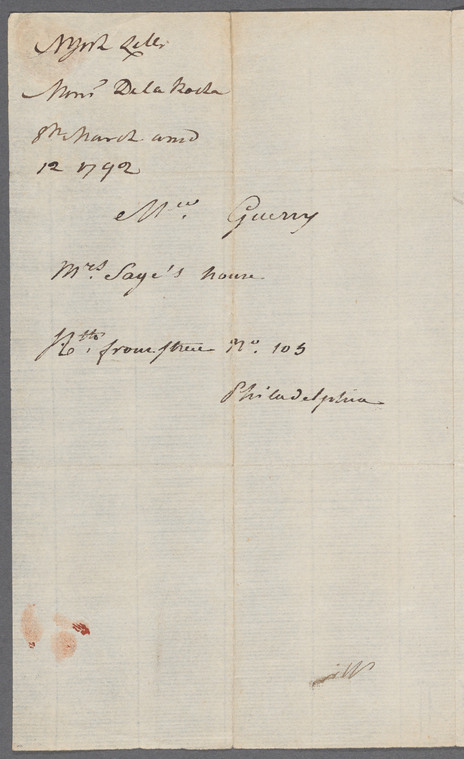 NYork Lettr
Monsr Dela Roche
8th March and
12 1792
Guerry
Mrs. Sage's house
from No. 105
Philadelphia